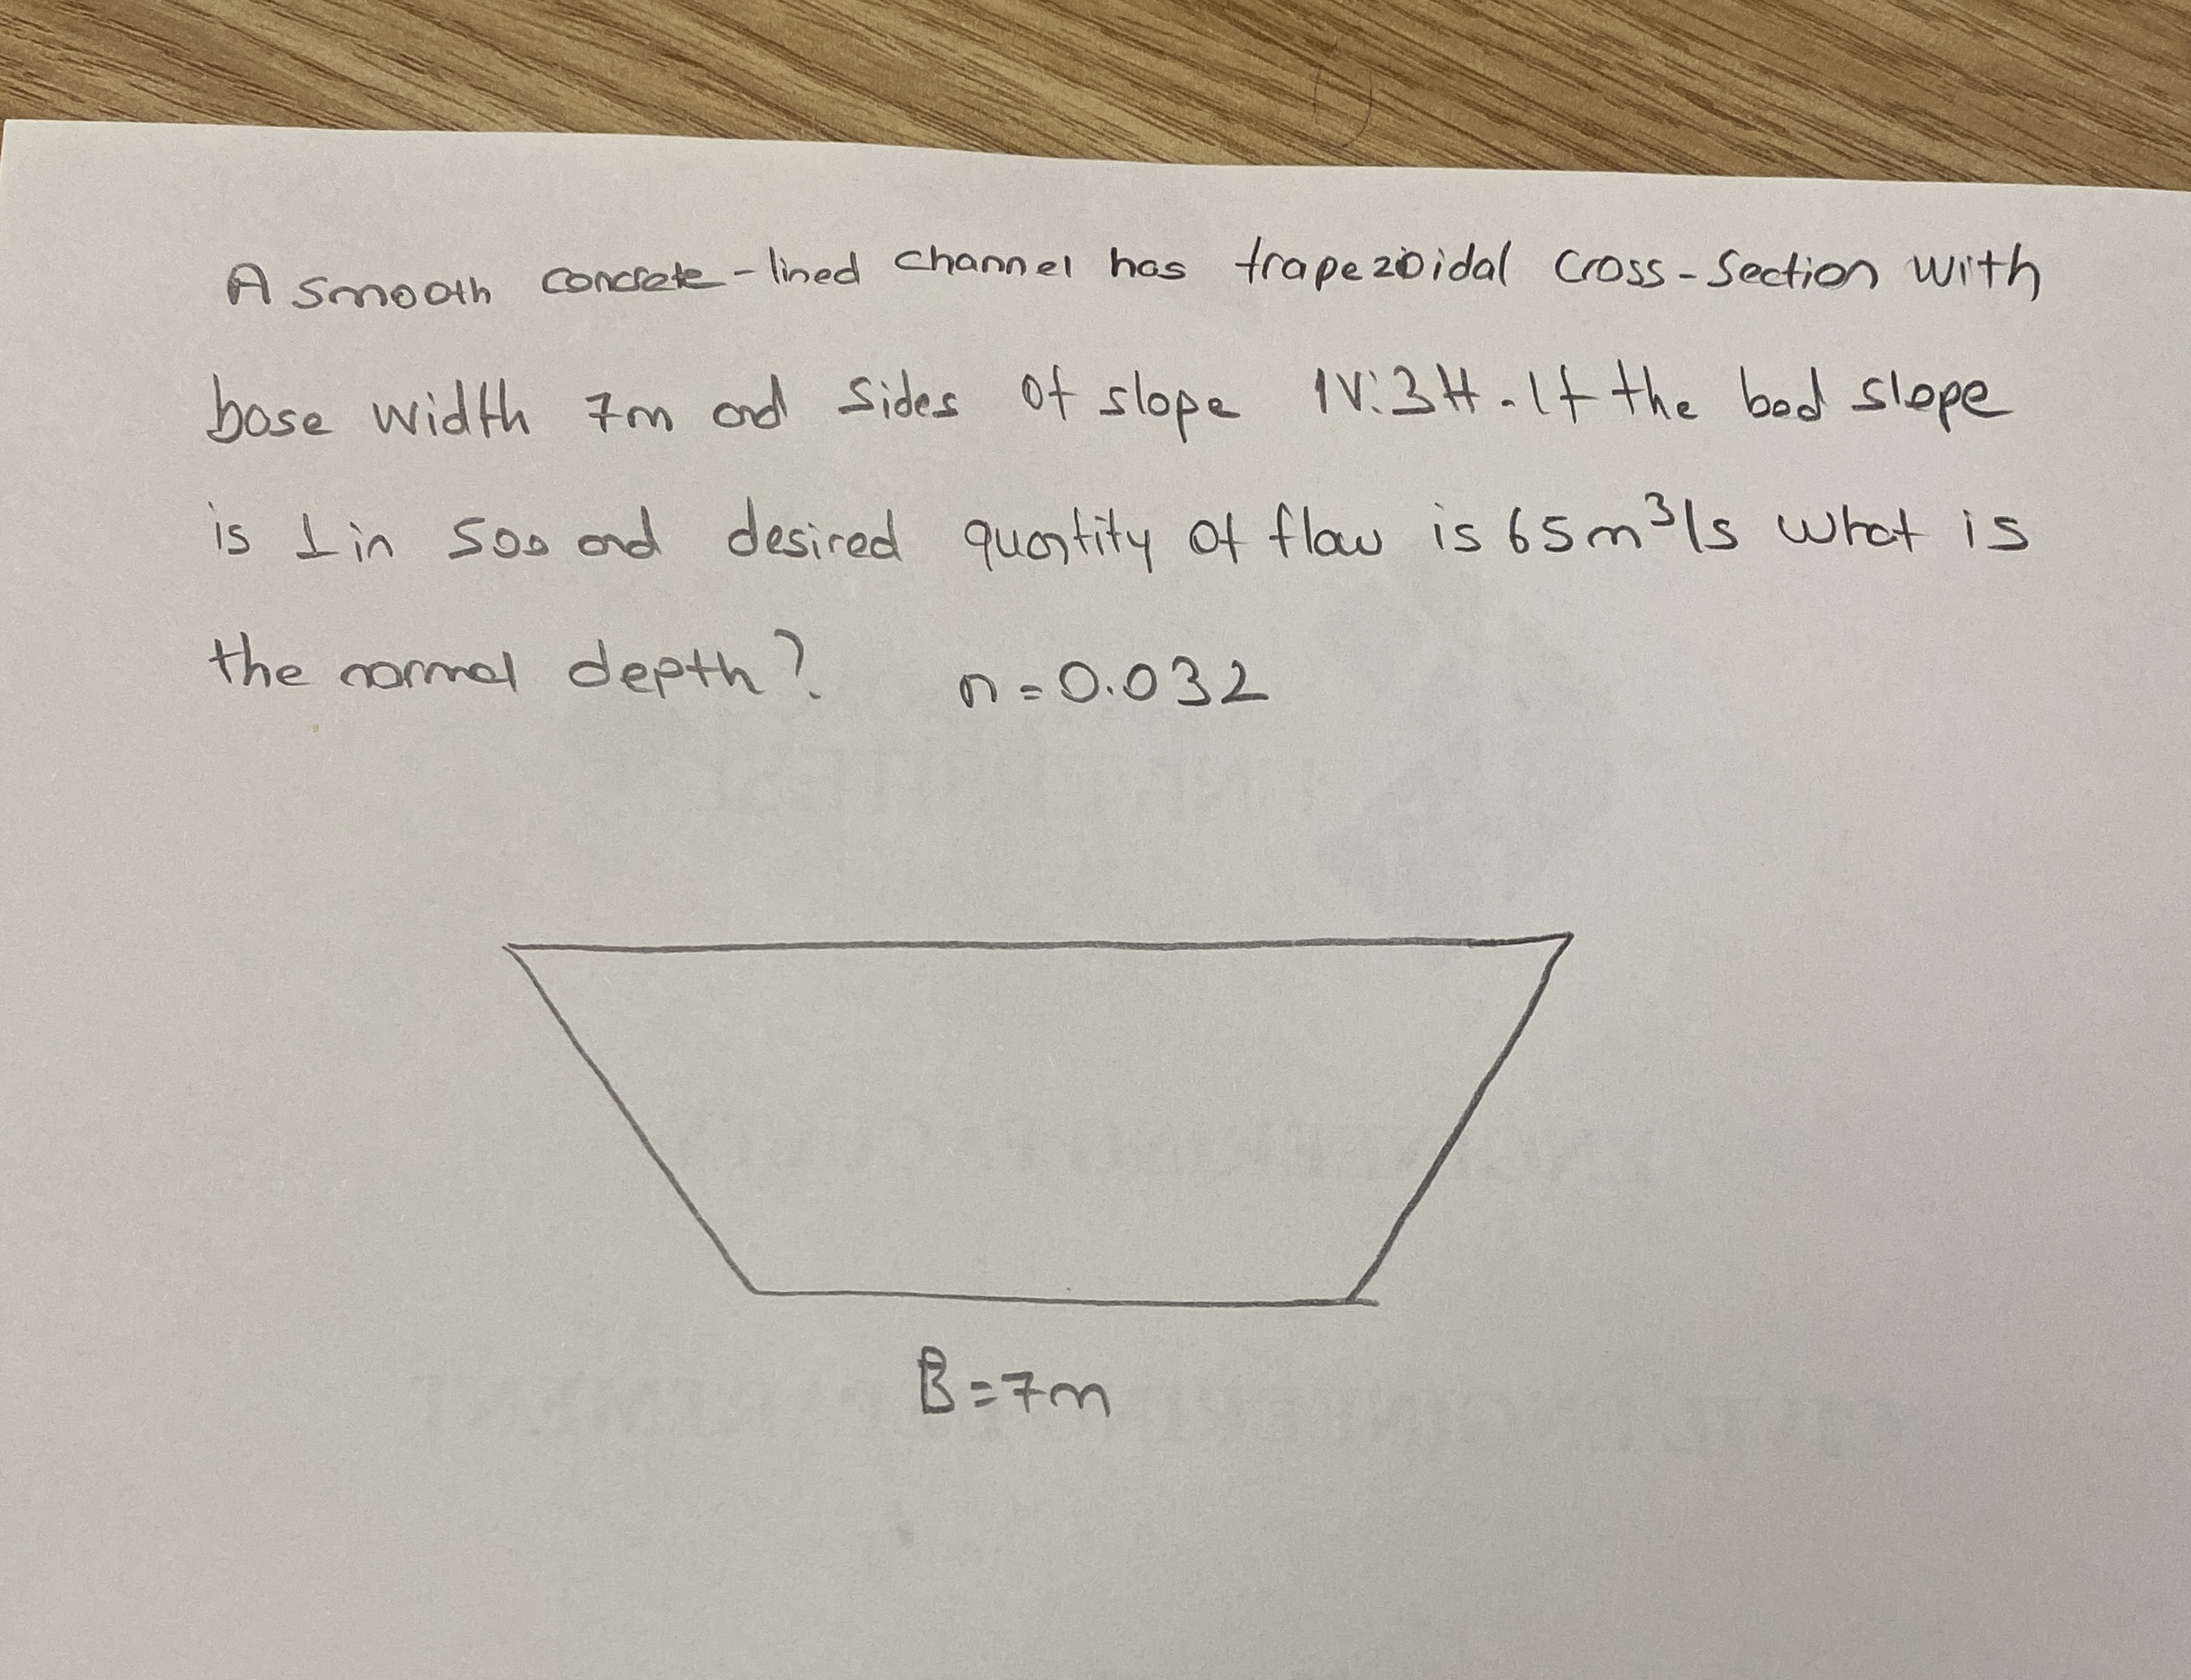 A smooth concrete-lined channel has trapezoidal cross-section with
base width 7m and sides of slope 1V:3H. If the bed slope
is 1 in 500 and desired quantity of flow is 65m³/s what is
the normal depth? n=0.032
B=7m